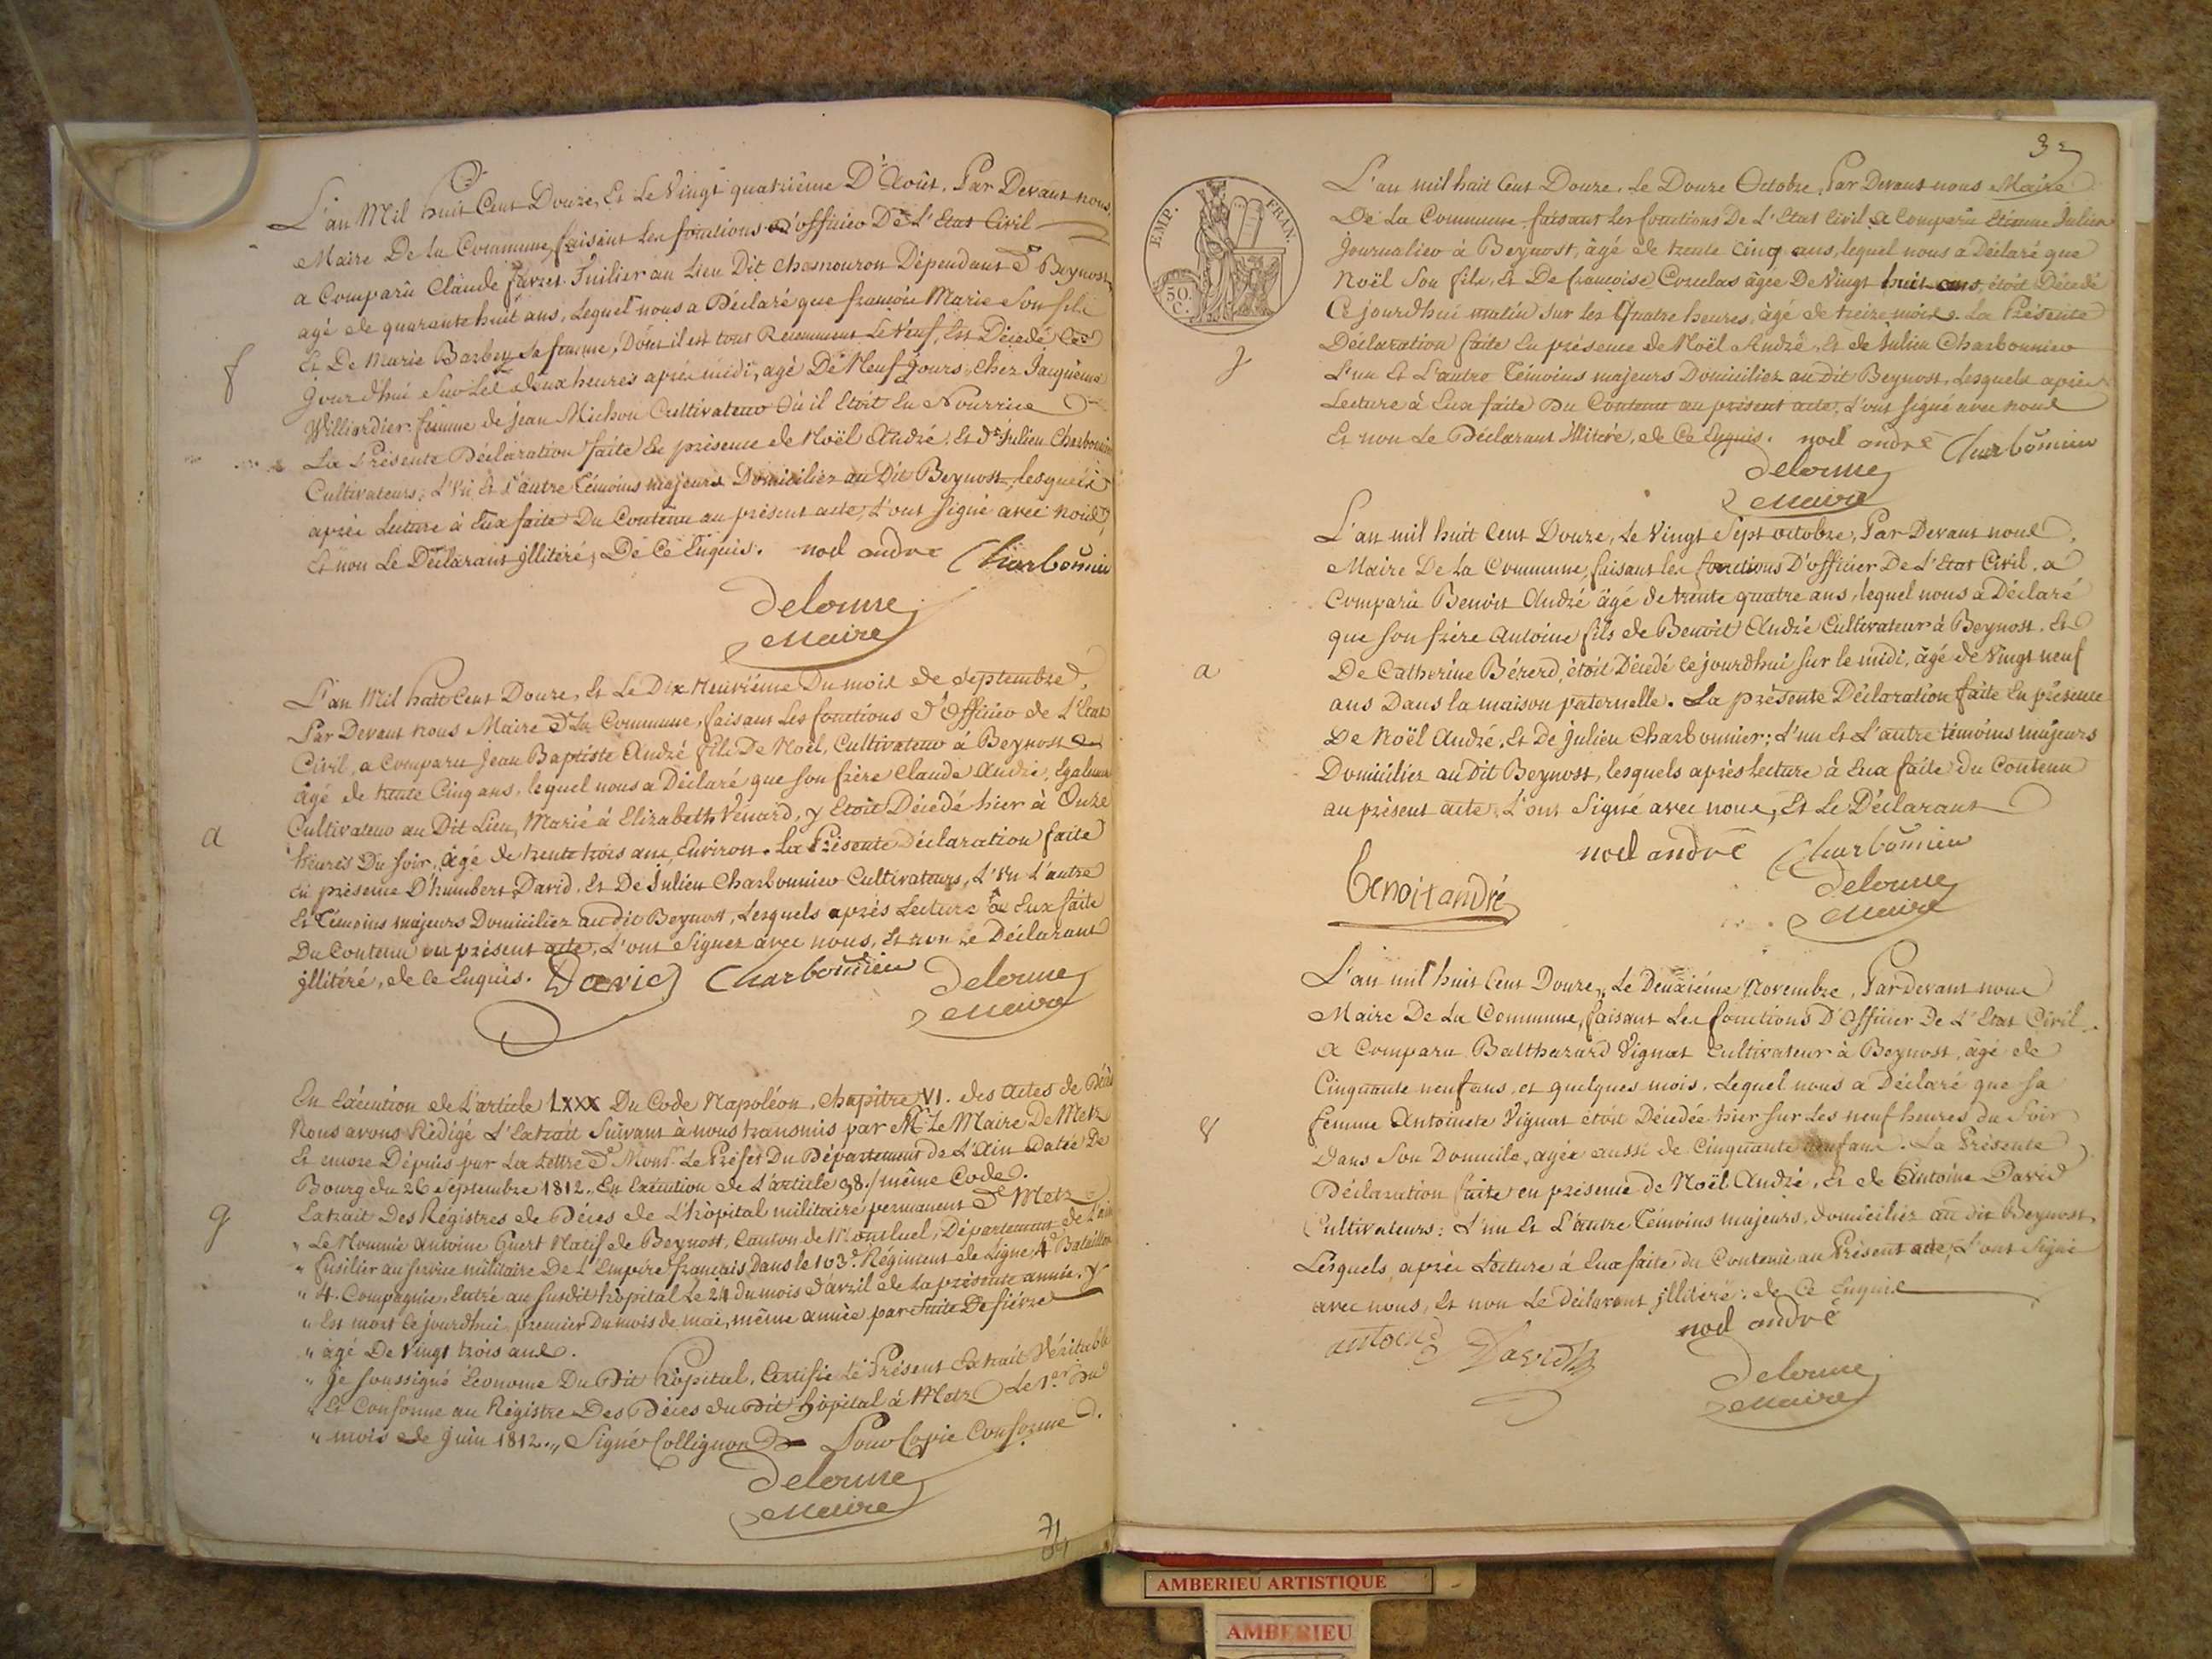 L'an Mil huit Cent Douze, Et Le Vingt quatrième D'Août, Par Devant nous,
Maire De la Commune, faisant les fonctions d'officier De L'Etat Civil
a Comparû Claude favret Tuilier au Lieu Dit Chamouron Dépendant de Beynost,
agé de quarante huit ans, Lequel nous a Déclaré que françois Marie Son fils
Et De Marie Barbey Sa femme, Dont il est tout Récemment Le Veuf, Est Décedé Ce
Jourd'hui Sur Les deux heures après midi, agé De Neuf Jours, Chez Jacquema
f
Villiardier femme de Jean Michon Cultivateur Où il Etoit En Nourrice
La Présente Déclaration faite En présence de Noël André, Et de Julien Charbonnier
Cultivateurs; L'Un, Et L'autre Témoins majeurs Domiciliez au Dit Beynost, lesquels
après Lecture à Eux faite Du Contenu au présent acte, L'ont Signé avec nous,
Et non Le Déclarant illitéré, De Ce Enquis. noel andre Charbonnier
Delorme
Maire
L'an Mil huit Cent Douze, Et Le Dix Neuvième Du mois de Septembre,
Par Devant nous Maire de La Commune, faisant Les fonctions d'Officier de L'Etat
Civil, a Comparu Jean Baptiste André fils De Noël, Cultivateur à Beynost
âgé de trente Cinq ans, lequel nous a Déclaré que Son frère Claude André, Egalement
Cultivateur au Dit Lieu, Marié à Elizabeth Vénard, y Etoit Décédé hier à Onze
a
heures Du Soir, âgé de trente trois ans, Environ. La Présente Déclaration faite
En présence D'humbert David, Et De Julien Charbonnier Cultivateurs, L'Un L'autre
Et Témoins majeurs Domiciliez au dit Beynost, Lesquels après Lecture à Eux faite
Du Contenu au présent acte, L'ont Signez avec nous, Et non Le Déclarant
illitéré, de Ce Enquis. David Charbonnier Delorme
Maire
En Exécution de L'article LXXX Du Code Napoléon, Chapitre VI. des Actes de Décès
Nous avons Rédigé L'Extrait Suivant à nous transmis par Mr Le Maire De Metz
Et encore Depuis par La Lettre de Monsr Le Préfet Du Département de L'Ain Datée De
Bourg du 26 Septembre 1812., En Exécution de L'article 98./ même Code.
g
Extrait Des Régistres de Décès de L'hôpital militaire permanent de Metz
„ Le Nommé Antoine Guert Natif de Beynost, Canton de Montluel, Département de L'ain
„ fusilier au Service militaire De L'Empire français, Dans le 103e Régiment de Ligne, 4e Bataillon
„ 4. Compagnie, Entré au Susdit hôpital Le 24 Du mois d'avril de la présente année, y
„ Est mort Ce jourd'hui, premier Du mois de mai, même année par Suite De fièvre
„ âgé De Vingt trois ans.
„ Je Soussigné Econome Du Dit hôpital, Certifie Le Présent Extrait Véritable
„ Et Conforme au Régistre Des Décès du Dit hôpital à Metz Le 1er Du
„ mois de Juin 1812.„ Signé Collignon Pour Copie Conforme
Delorme
Maire
EMP. FRAN.
50.
C.
L'an mil huit Cent Douze, Le Douze Octobre, Par Devant nous Maire
De La Commune faisant les fonctions De L'Etat Civil, a Comparû Etienne Julien
Journalier à Beynost, âgé de trente Cinq ans, lequel nous a Déclaré que
Noël Son fils, Et De françoise âgée De Vingt huit ans, étoit Décedé
Ce jourd'hui matin sur les Quatre heures, âgé de treize mois. La Présente
Déclaration faite En présence de Noël André, Et de Julien Charbonnier
J
L'un Et L'autre Témoins majeurs Domiciliez au dit Beynost, Lesquels après
Lecture à Eux faite Du Contenu au présent acte, L'ont Signé avec nous
Et non Le Déclarant illitéré, de Ce Enquis. noel andré Charbonnier
Delorme
Maire
L'an mil huit Cent Douze, Le Vingt Sept octobre, Par Devant nous
Maire De La Commune, faisant les fonctions D'officier De L'Etat Civil, a
Comparû Benoit André âgé de trente quatre ans, lequel nous a Déclaré
que Son frère Antoine fils de Benoit André Cultivateur à Beynost, Et
a
De Catherine Bérerd, étoit Décedé ce jourd'hui sur le midi, âgé de Vingt neuf
ans Dans la maison paternelle. La présente Déclaration faite En présence
De Noël André, Et De Julien Charbonnier; L'un Et L'autre témoins majeurs
Domiciliez au Dit Beynost, lesquels après Lecture à Eux faite du Contenu
au présent acte, L'ont Signé avec nous, Et Le Déclarant
noel andré Charbonnier
benoit andré
Delorme
Maire
L'an mil huit Cent Douze, Le Deuxième Novembre, Par devant nous
Maire De La Commune, faisant Les fonctions D'Officier De L'Etat Civil
a Comparu Balthazard Vignat Cultivateur à Beynost, âgé de
Cinquante neuf ans, et quelques mois, Lequel nous a Déclaré que Sa
femme Antoinete Vignat étoit Décédée hier Sur Les neuf heures du Soir
Dans Son Domicile, agée aussi de Cinquante neuf ans. La Présente
Déclaration faite en présence de Noël André, Et de Antoine David
Cultivateurs: L'un Et L'autre Témoins majeurs, domiciliez au dit Beynost,
Lesquels, après Lecture à Eux faite du Contenû au Présent acte, L'ont Signé
avec nous, Et non Le déclarant illitéré: de Ce Enquis
antoine David noel andré
Delorme
Maire
AMBERIEU ARTISTIQUE
AMBERIEU